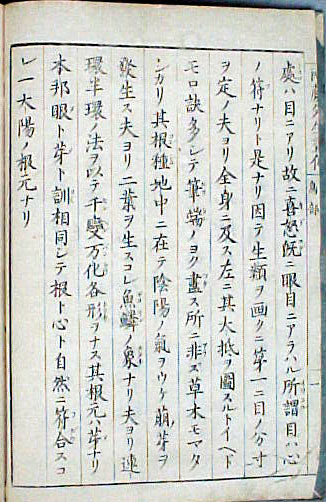 處ハ目ニアリ故ニ喜怒既ニ眼目ニアラハル所謂目ハ心
ノ符ナリト是ナリ因テ生類ヲ画クニ第一ニ目ノ分寸
ヲ定ノ夫ヨリ全身ニ及ス左ニ其大抵ヲ圖スルトイヘド
モロ訣多クシテ筆端ノヨク盡ス所ニ非ズ草木モマタ
シカリ其根種地中ニ在テ陰陽ノ氣ヲウケ萌芽ヲ
發生ス夫ヨリ二葉ヲ生スコレ魚鱗ノ象ナリ夫ヨリ連
環半環ノ法ヲ以テ千變万化各形ヲナス其根元ハ芽ナリ
本邦眼ト芽ト訓相同シテ根ト心ト自然ニ符合スコ
レ一大陽ノ根元ナリ